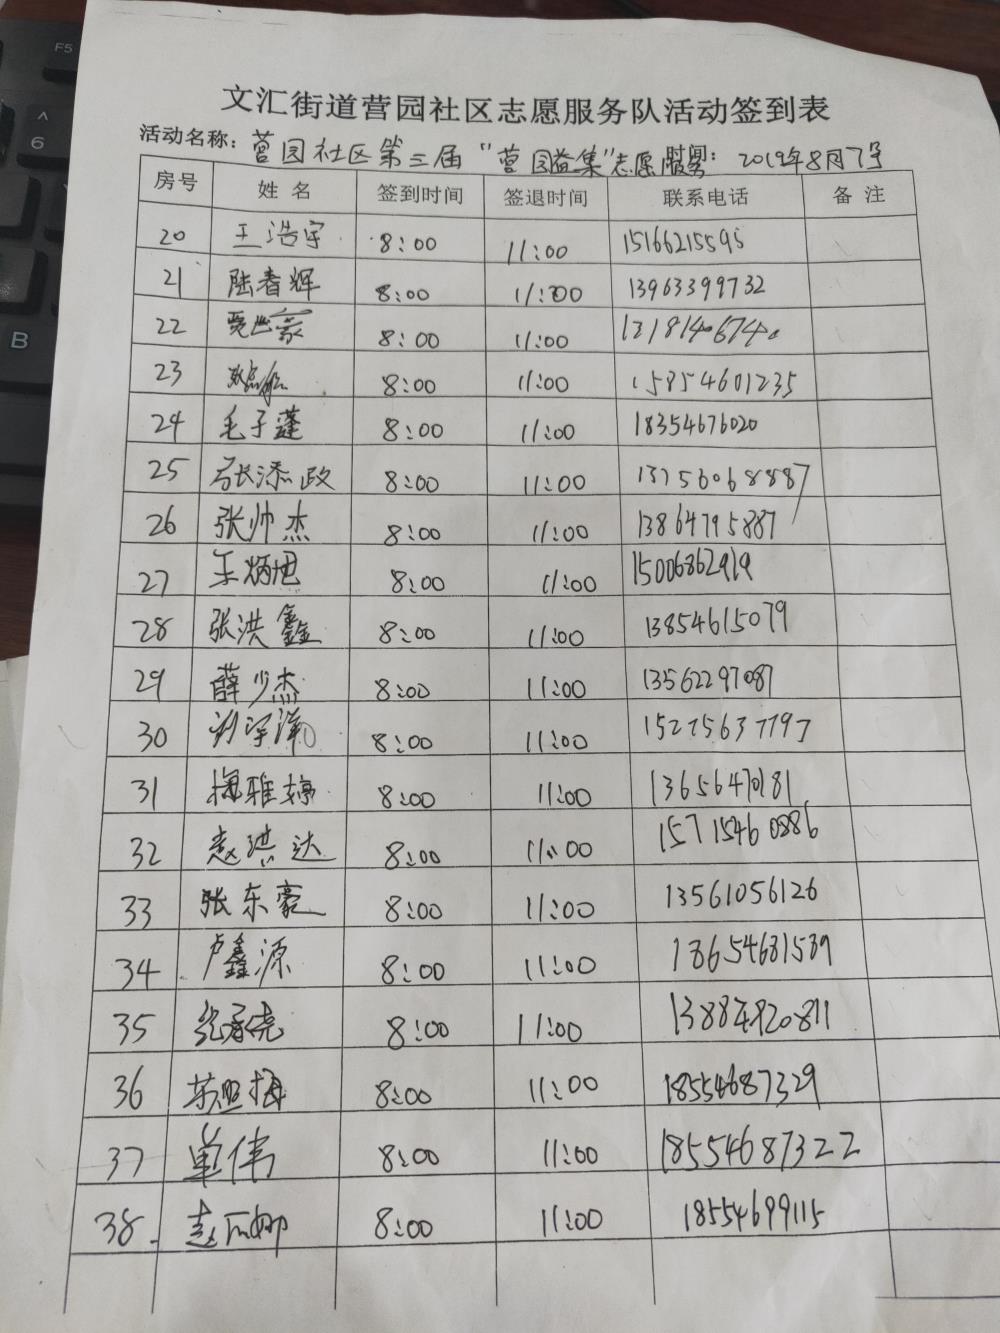 F5
^
6
B
文汇街道营园社区志愿服务队活动签到表
活动名称：营园社区第三届“营园益集”志愿服务 时间：2019年8月7号
房号 姓名 签到时间 签退时间 联系电话 备注
20 王浩宇 8:00 11:00 15166215595
21 陆春辉 8:00 11:00 13963399732
22 8:00 11:00 13181406740
23 8:00 11:00 15854601235
24 毛子蓬 8:00 11:00 18354676020
25 张添政 8:00 11:00 13756068887
26 张帅杰 8:00 11:00 13864795887
27 8:00 11:00 15006862919
28 张洪鑫 8:00 11:00 13854615079
29 薛少杰 8:00 11:00 13562297087
30 刘宇 8:00 11:00 15275637797
31 梅雅婷 8:00 11:00 13656470181
32 赵洪达 8:00 11:00 15715460886
33 张东豪 8:00 11:00 13561056126
34 卢鑫源 8:00 11:00 13654681539
35 8:00 11:00 13884820811
36 8:00 11:00 18554687329
37 单伟 8:00 11:00 18554687322
38. 赵娜 8:00 11:00 18554699115